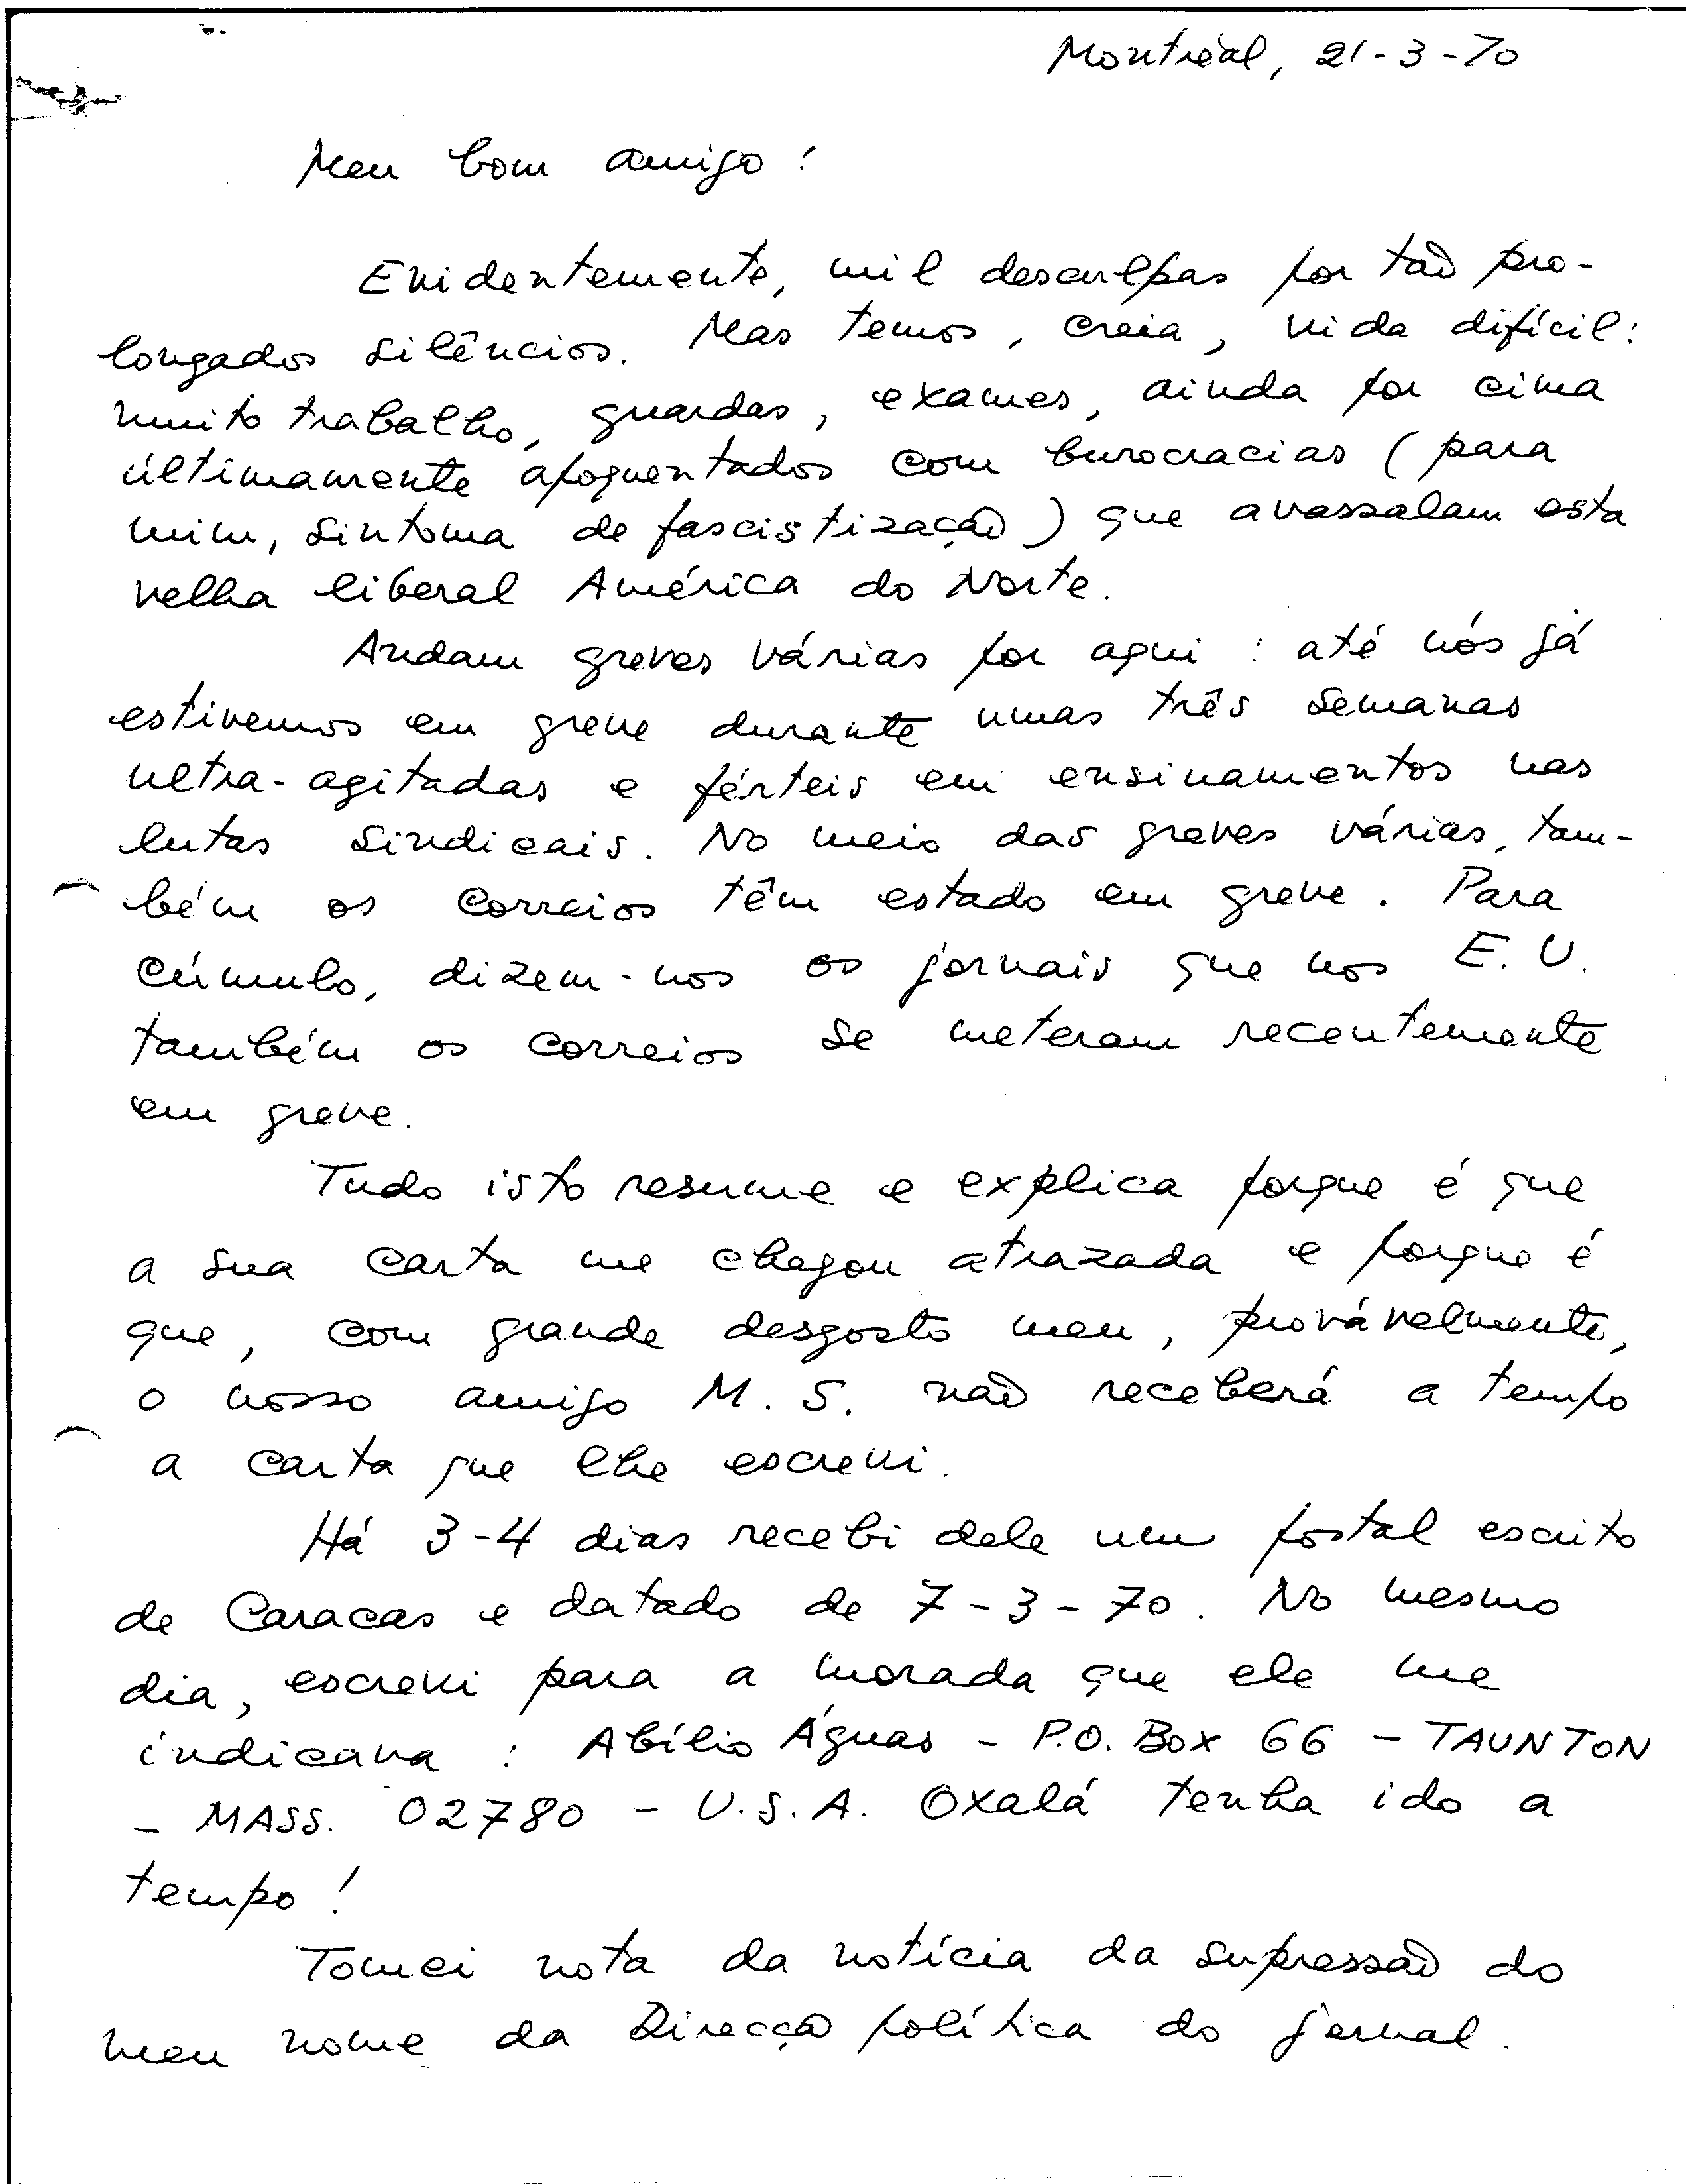 Montreal, 21-3-70
Meu bom amigo!
Evidentemente, mil desculpas por tão pro-
longados silêncios. Mas temos, creia, vida difícil:
muito trabalho, guardas, exames, ainda por cima
últimamente afoguentados com burocracias (para
mim, sintoma de fascistização) que avassalam esta
velha liberal América do Norte.
Andam greves várias por aqui: até nós já
estivemos em greve durante umas três semanas
ultra-agitadas e férteis em ensinamentos nas
lutas sindicais. No meio das greves várias, tam-
bém os correios têm estado em greve. Para
cúmulo, dizem-nos os jornais que nos E.U.
também os correios se meteram recentemente
em greve.
Tudo isto resume e explica porque é que
a sua carta me chegou atrazada e porque é
que, com grande desgosto meu, provávelmente,
o nosso amigo M. S. não receberá a tempo
a carta que lhe escrevi.
Há 3-4 dias recebi dele um postal escrito
de Caracas e datado de 7-3-70. No mesmo
dia, escrevi para a morada que ele me
indicava: Abílio Águas - P.O. Box 66 - TAUNTON
- MASS. 02780 - U.S.A. Oxalá tenha ido a
tempo!
Tomei nota da notícia da supressão do
meu nome da Direcção política do jornal.